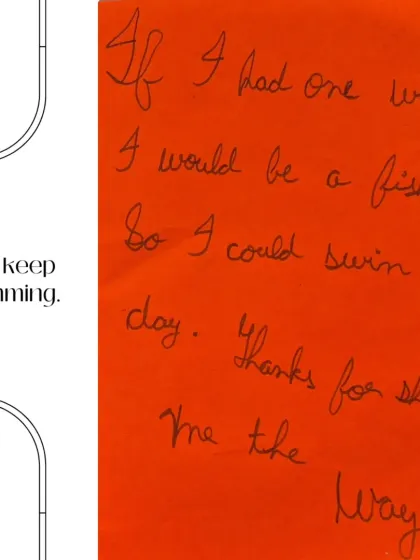 keep
mming.
If I had one w
I would be a fis
So I could swin
day. Thanks for sh
me the
Way